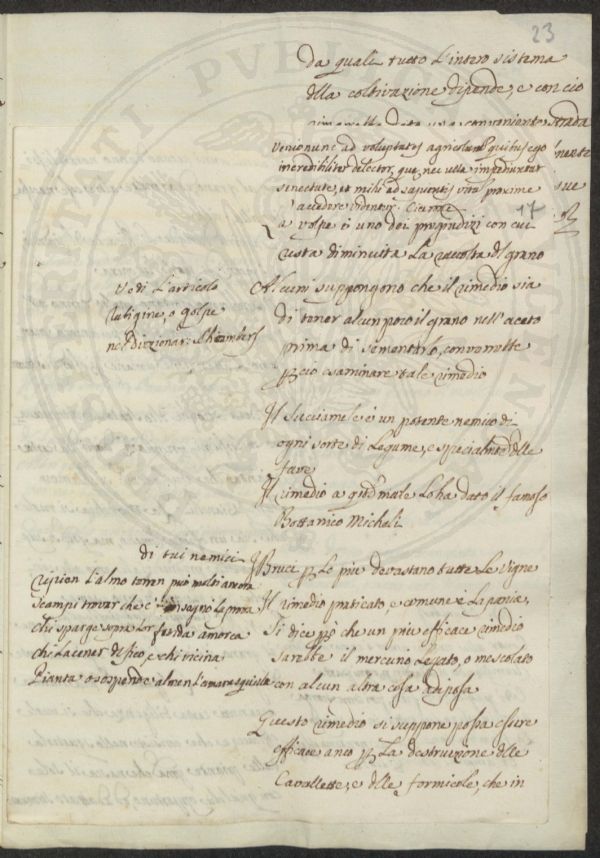 23
da quali tutto l'intero sistema
della coltivazione dipende, e con cio
strada
Veniunt ad voluptates agricolarum quibus ego
incredibiliter delector, quae nec ulla impediuntur
senectute, et mihi ad sapientis vitam proxime
accedere videntur. Cicerone
17
La volpe è uno dei pregiudizi con cui
resta diminuita la raccolta del grano
Alcuni suppongono che il rimedio sia
di tener alcun poco il grano nell'aceto
prima di sementarlo, converrebbe
perciò esaminare tale rimedio
Vedi l'articolo
rubigine, o golpe
nel Dizzionar: Chambers
Il succiamele è un potente nemico di
ogni sorte di Legume, e specialmte delle
fave
Il rimedio a questo male lo ha dato il famoso
Bottanico Micheli
I Bruci per lo più devastano tutte le vigne
Il rimedio praticato e comune è la pania,
si dice però che un più efficace rimedio
sarebbe il mercurio legato, o mescolato
con alcun altra cosa adiposa
di tui nemici
ripien l'almo terren può molti ancora
scampi trovar che c'insegnò la prova
chi sparge sopra lor fetida amorca
chi la cener del fico, e chi vicina
Pianta o sospende almen l'amara squilla
Questo rimedio si suppone possa essere
efficace anco per la destruzione delle
Cavallette, e delle formicole, che in